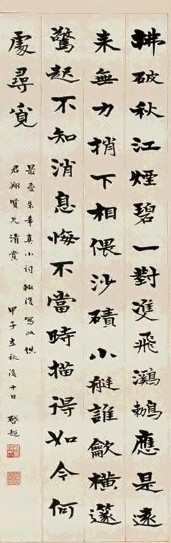 拂破秋江煙碧一對雙飛鸂鶒應是遠
來無力捎下相偎沙磧小艇誰龡橫篴
驚起不知消息悔不當時描得如今何
處尋覓
朱希真小詞 寫以供
君翔賢兄清賞 甲子立秋後十日 啟超